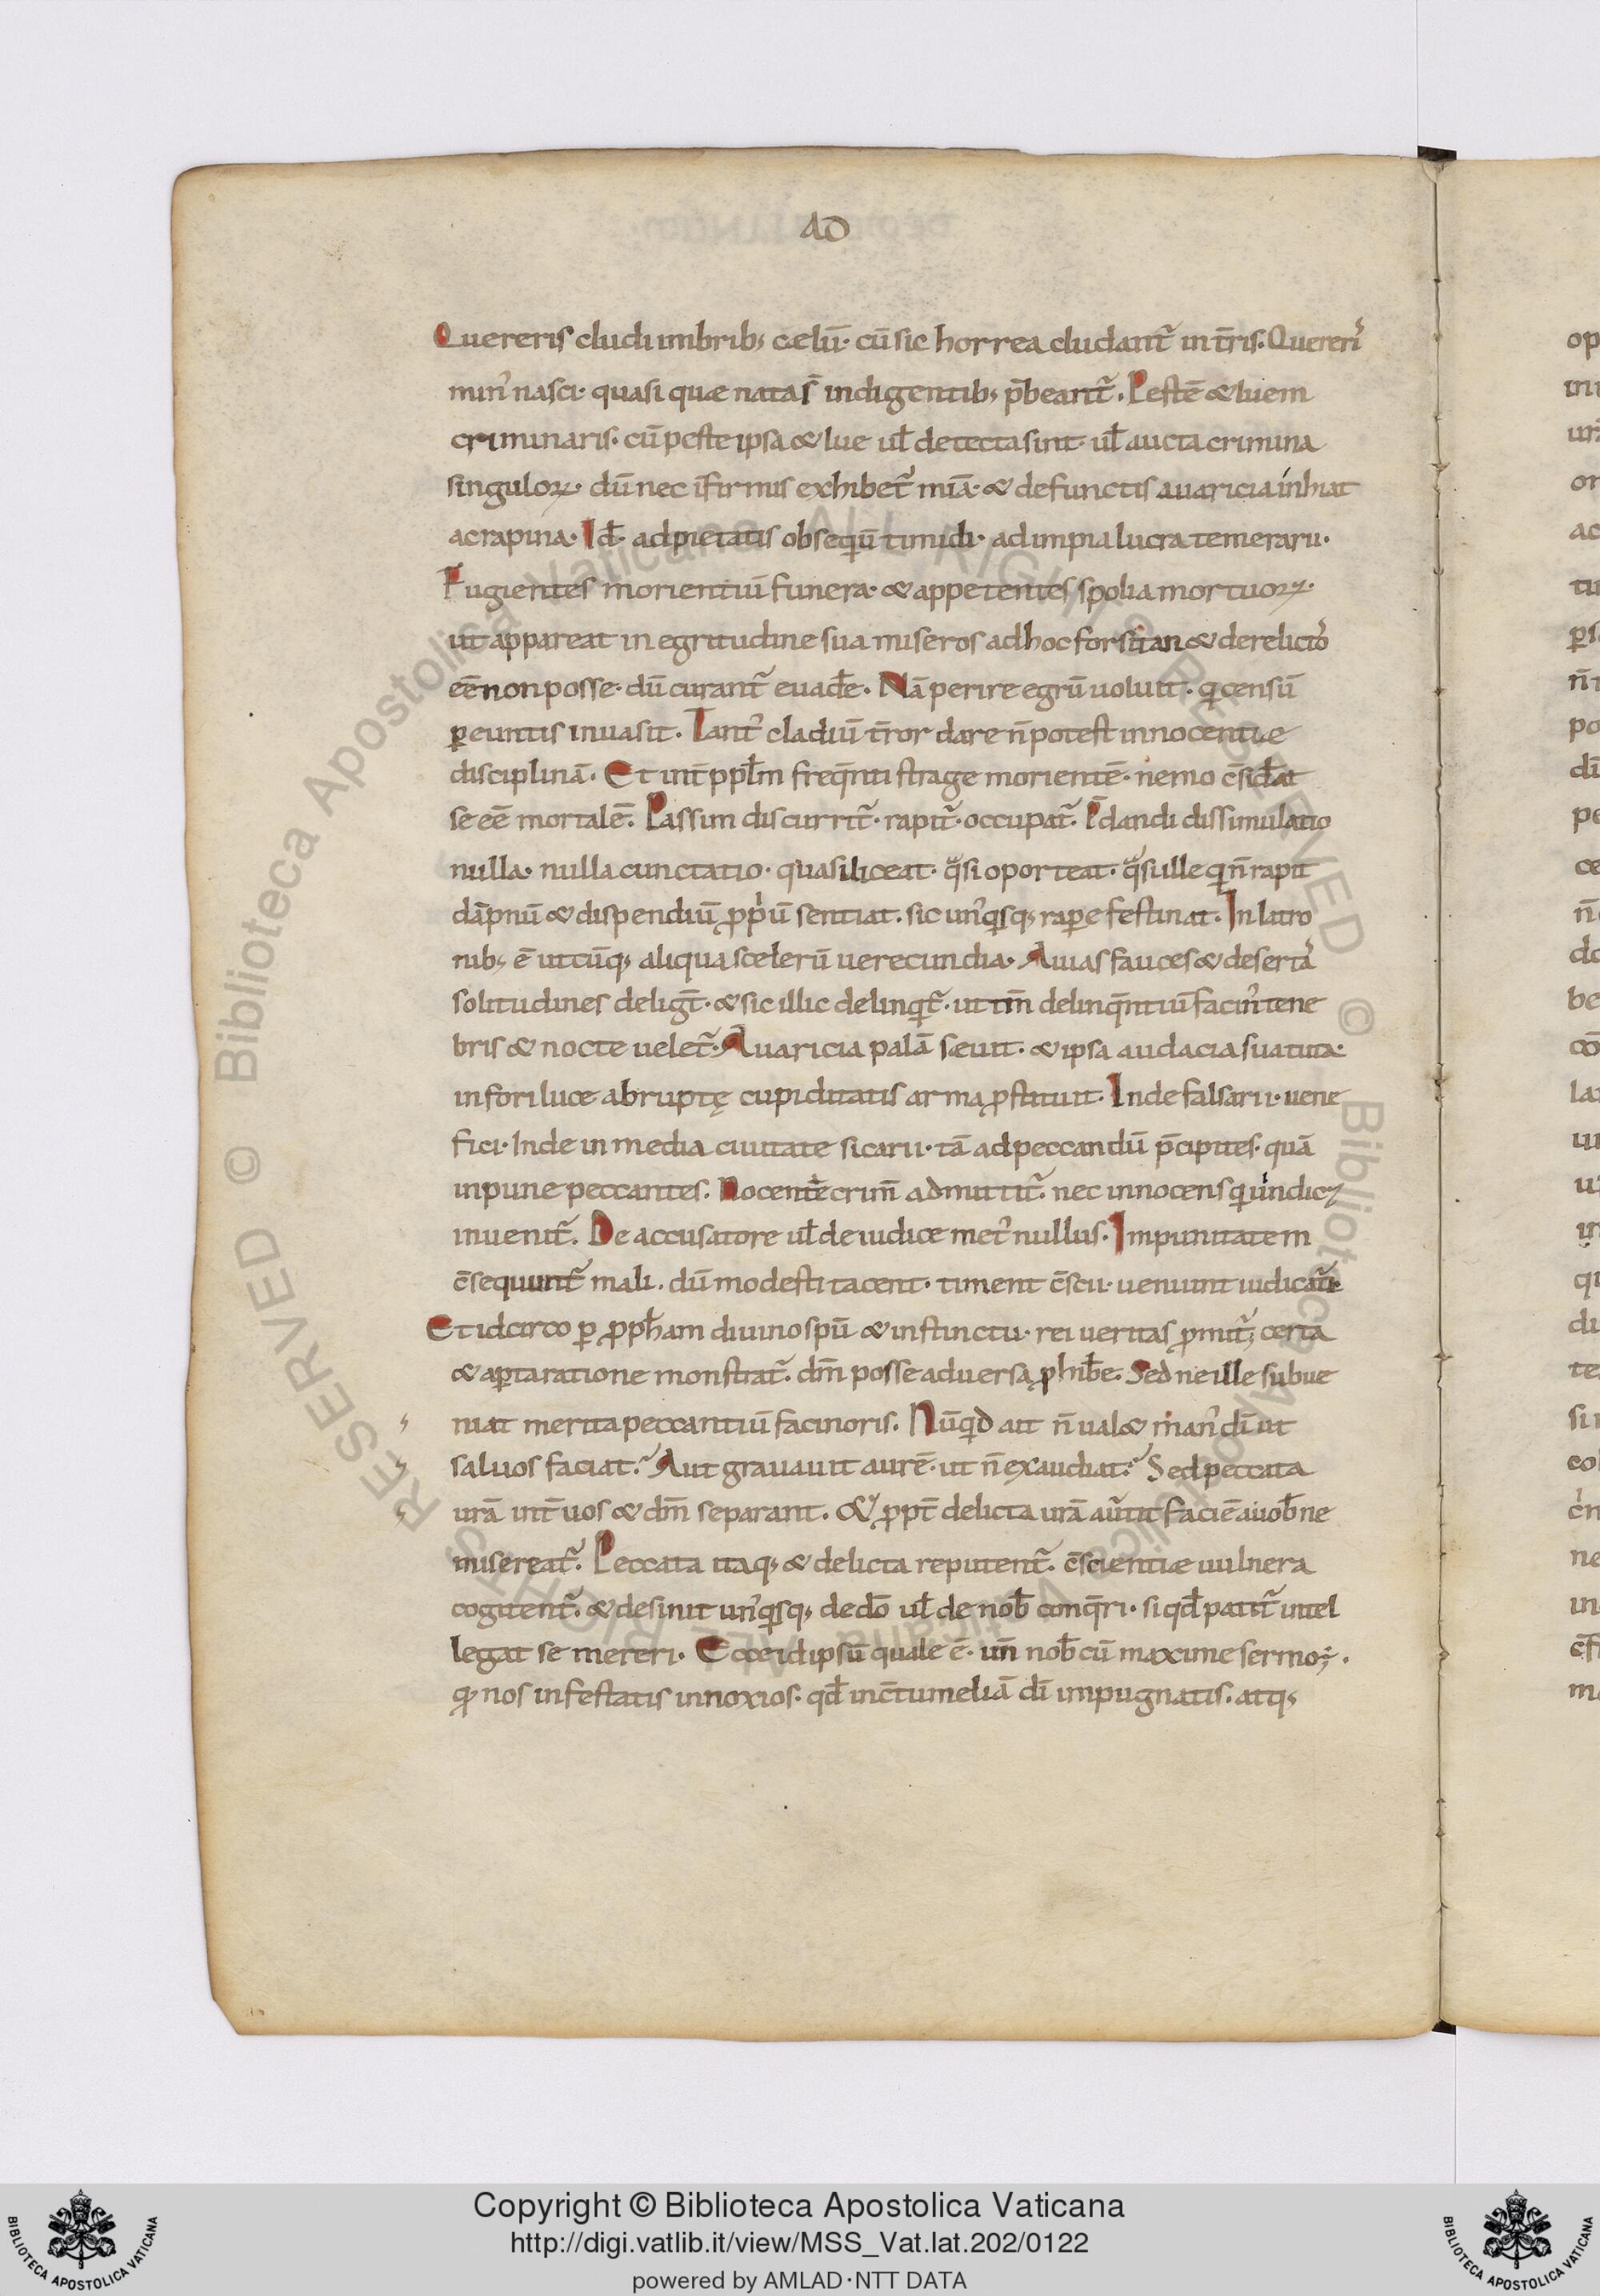 AD
Quereris cludi imbrib; celū· cū sic horrea cludant̃ in t̄ris. Quereri᾿
min᾿ nasci· quasi quæ nata s̄ indigentib; p̄beant̃. Pestē & luem
criminaris· cū peste ipsa & lue ul̄ detecta sint· ul̄ aucta crimina
singuloꝝ· dū nec īfirmis exhibet̃ mīa· & defunctis auaricia inhiat
ac rapina· Id̄· ad pietatis obseqiū timidi· ad impia lucra temerarii·
Fugientes morientiū funera· & appetentes spolia mortuoꝝ·
ut appareat in egritudine sua miseros ad hoc forsitan & derelicto᾿
eē non posse· dū curant̃ euad̄e· Nā perire egrū uoluit· qi censū
ꝑeuntis inuasit. Tant᾿ cladiū t̄ror dare n̄ potest innocentiæ
disciplinā· Et int̄ ppl̄m freq̄nti strage morientē· nemo c̄sid̄at
se eē mortalē. Passim discurrit̃· rapit̃· occupat̃. P̄dandi dissimulatio
nulla· nulla cunctatio· quasi liceat· qͣsi oporteat· qͣsi ille qi n̄ rapit
dāpnū & dispendiū ꝓpiū sentiat. sic un᾿qisq; raꝑe festinat. In latro
nib; ē utcūq; aliqua scelerū uerecundia· Auias fauces & deserta᾿
solitudines deligt̄· & sic illic delinqit̃· ut tm̄ delinq̄ntiū facin᾿ tene
bris & nocte uelet̃· Auaricia palā sæuit· & ipsa audacia sua tuta·
in fori luce abruptę cupiditatis arma ꝓstituit· Inde falsarii· uene
fici· Inde in media ciuitate sicarii· tā ad peccandū p̄cipites· quā
inpune peccantes. Nocente crim̄ admittit̃· nec innocens qi uindicꝫ
inuenit̃. De accusatore ul̄ de iudice met᾿ nullus· Impunitatem
c̄sequunt̃ mali. dū modesti tacent· timent c̄scii· ueniunt iudicat̃i·
Et idcirco ꝑ ꝓph̄am diuino spū & instinctu· rei ueritas ꝓmit̃; certa
& aꝑta ratione monstrat̃. dm̄ posse aduersa ꝓhib̄e. Sed ne ille subue
niat merita peccantiū facinoris. Nūqid ait n̄ ual& man᾿ dī ut
saluos faciat? Aut grauauit aurē· ut n̄ exaudiat? Sed peccata
urā int̄ uos & dm̄ separant. & ꝓpt̄ delicta urā au̾tit faciē a uob̄ ne
misereat̃. Peccata itaq; & delicta reputent̃. c̄scientiæ uulnera
cogitent̃· & desinit un᾿qisq; de dō ul̄ de nob̄ conq̄ri· si qd̄ patit̃ intel
legat se mereri· Ecce id ipsū quale ē· un̄ nob̄ cū maxime sermo÷.
qͩ nos infestatis innoxios· qd̄ in c̄tumeliā dī impugnatis· atq;
op
ini
or
ac
tu
po
dī
pe
ce
n̄
do
be
la
qu
du
te
si
ne
ma
Copyright © Biblioteca Apostolica Vaticana
http://digi.vatlib.it/view/MSS_Vat.lat.202/0122
powered by AMLAD·NTT DATA
BIBLIOTECA APOSTOLICA VATICANA
BIBLIOTECA APOSTOLICA VATICANA